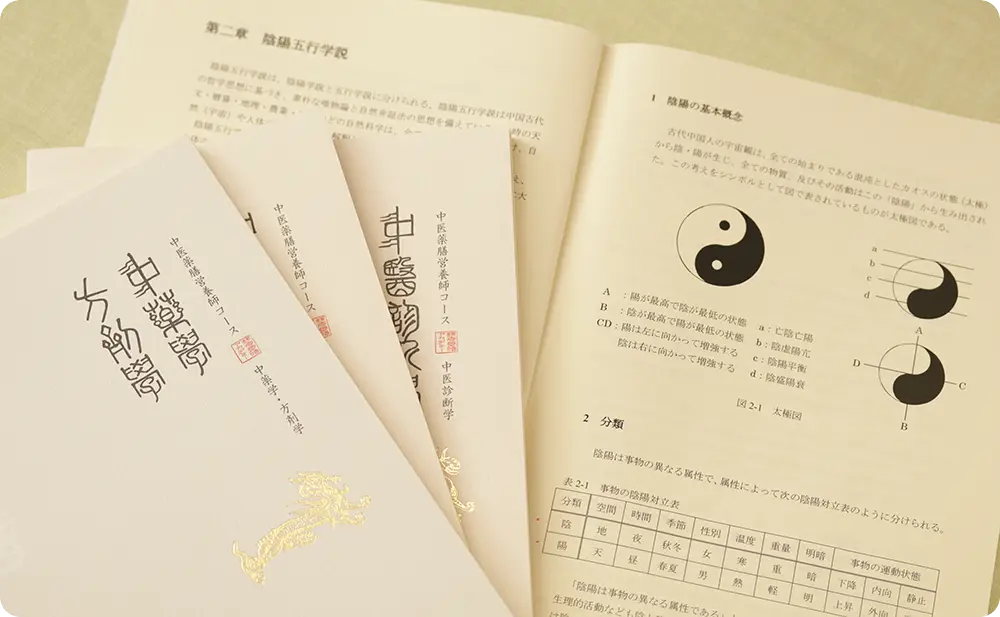 第二章　陰陽五行学説
陰陽五行学説は、陰陽学説と五行学説に分けられる。陰陽五行学説は中国古代
の哲学思想に基づき、素朴な唯物論と自然弁証法の思想を備えてい
時の天
文・暦算・地理・農業・
どの自然科学は、
然（宇宙）や人体
陰陽五行
1　陰陽の基本概念
古代中国人の宇宙観は、全ての始まりである混沌としたカオスの状態（太極）
から陰・陽が生じ、全ての物質　及びその活動はこの「陰陽」から生み出され
た。この考えをシンボルとして図で表されているものが太極図である。
a
b
c
d
A：陽が最高で陰が最低の状態
B：陰が最高で陽が最低の状態
CD：陽は左に向かって増強する
陰は右に向かって増強する
a：亡陰亡陽
b：陰虚陽亢
c：陰陽平衡
d：陰盛陽衰
A
D
C
B
図 2-1　太極図
2　分類
陰陽は事物の異なる属性で、属性によって次の陰陽対立表のように分けられる。
表 2-1　事物の陰陽対立表
分類 空間 時間 季節 性別 温度 重量 明暗 事物の運動状態
陰 地 夜 秋冬 女 寒 重 暗 下降 内向 静止
陽 天 昼 春夏 男 熱 軽 明 上昇 外向
「陰陽は事物の異なる属性である」
生理的活動なども陰
中医薬膳営養師コース
中薬学・方剤学
中藥學
方劑學
中医薬膳営養師コース
中医薬膳営養師コース
中医診断学
中醫診